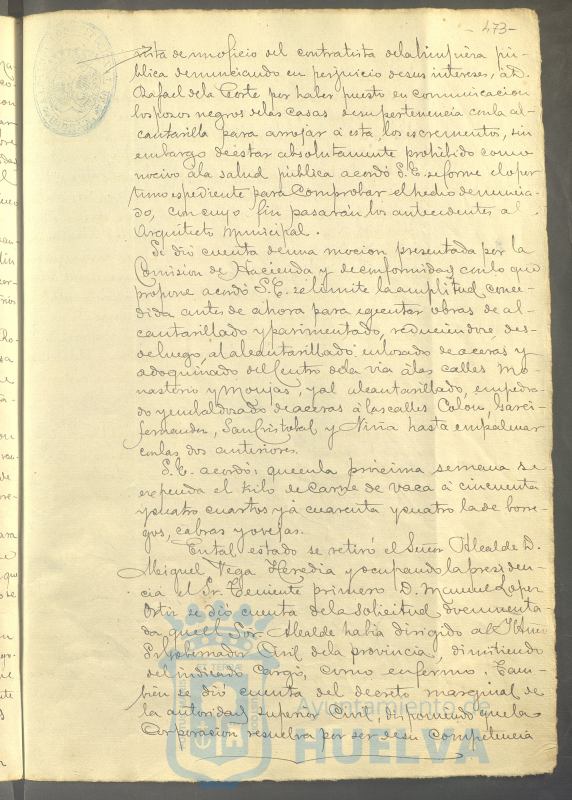 -473-
vista de un oficio del contratista de la limpieza pú-
blica denunciando en perjuicio de sus intereses, á D.
Rafael de la Corte por haber puesto en comunicacion
los pozos negros de las casas de su pertenencia con la al-
cantarilla para arrojar á esta, los escrementos, sin
embargo de estar absolutamente prohibido como
nocivo á la salud pública acordó S.E. se forme el opor-
tuno espediente para comprobar el hecho denuncia-
do, con cuyo fin pasarán los antecedentes al
Arquitecto Municipal.
Se dió cuenta de una mocion presentada por la
Comision de Hacienda y de conformidad con lo que
propone acordó S.E. se limite la amplitud conce-
dida antes de ahora para egecutar obras de al-
cantarillado y pavimentado, reduciendose, des-
de luego, al alcantarillado, enlosado de aceras y
adoquinado del Centro de la via á las calles Mo-
nasterio y Monjas, y al alcantarillado, empedra-
do y embaldosado de aceras á las calles Colon, Garci-
fernandez, San Cristobal y Niña hasta empalmar
con las dos anteriores.
S.E. acordó: que en la próxima semana se
expenda el kilo de carne de vaca á cincuenta
y cuatro cuartos y á cuarenta y cuatro la de borre-
gos, cabras y ovejas.
En tal estado se retiró el Señor Alcalde D.
Miguel Vega Heredia y ocupando la presiden-
cia el Sr. Teniente primero D. Manuel Lopez
Ortiz se dió cuenta de la solicitud documenta-
da que el Sor. Alcalde habia dirigido al Iltmo
Sr. Gobernador Civil de la provincia, dimitiendo
del indicado Cargo, como enfermo. Tam-
bien se dió cuenta del decreto marginal de
la autoridad superior Civil, disponiendo que la
Corporacion resuelva por ser de su competencia
Ayuntamiento de
HUELVA